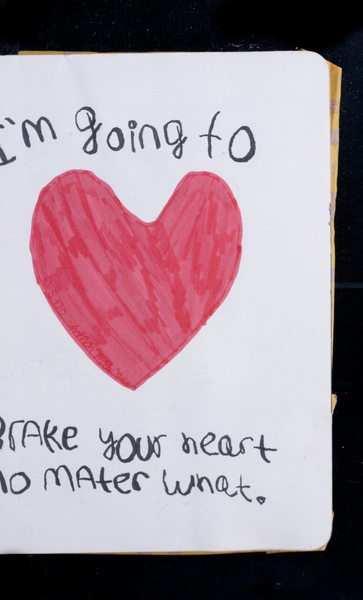 I'm going to
BrAKe your heart
No MAter what.